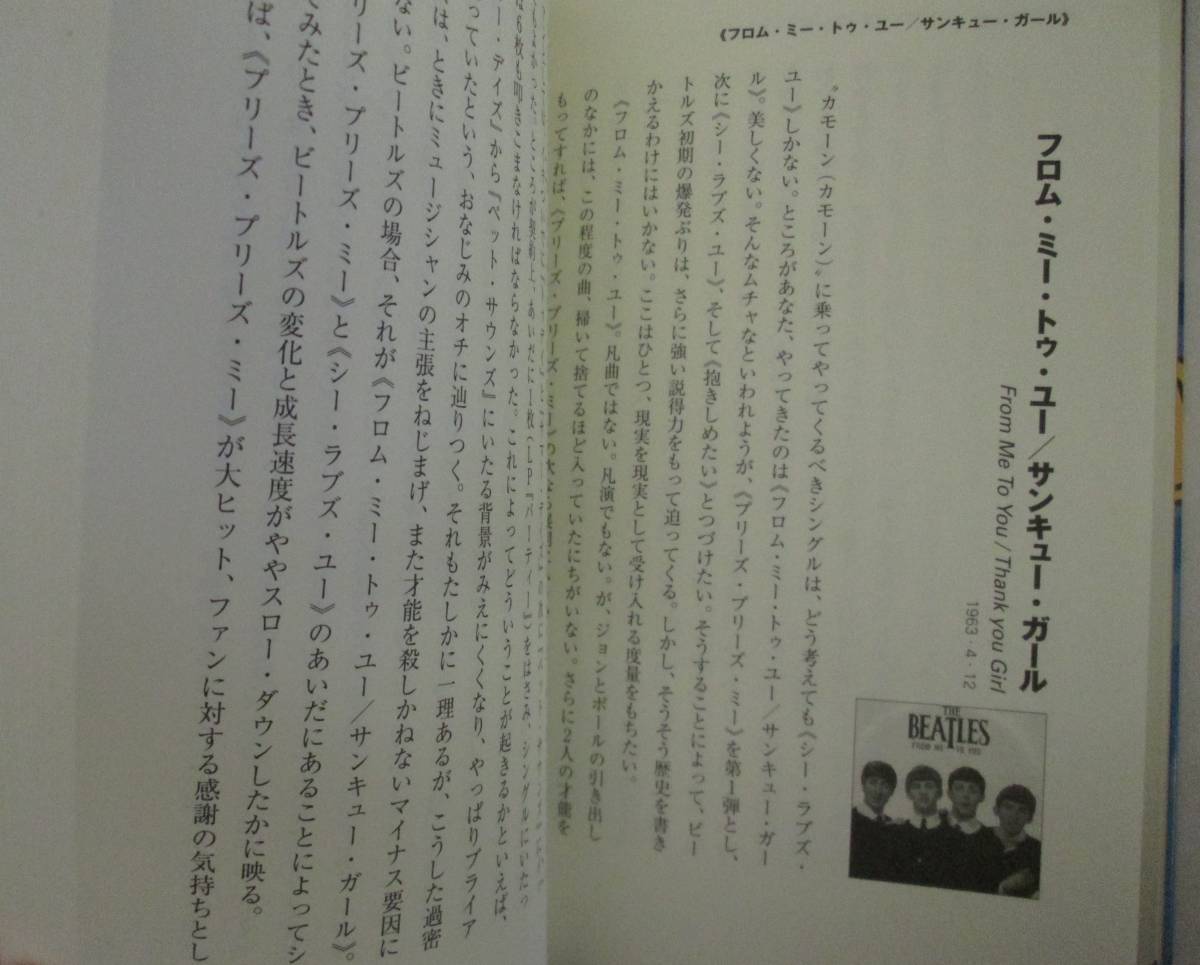 《フロム・ミー・トゥ・ユー／サンキュー・ガール》
フロム・ミー・トゥ・ユー／サンキュー・ガール
From Me To You / Thank you Girl
1963・4・12
THE
BEATLES
FROM ME TO YOU
“カモーン（カモーン）”に乗ってやってくるべきシングルは、どう考えても《シー・ラブズ・
ユー》しかない。ところがあなた、やってきたのは《フロム・ミー・トゥ・ユー／サンキュー・ガー
ル》。美しくない。そんなムチャなといわれようが、《プリーズ・プリーズ・ミー》を第1弾とし、
次に《シー・ラブズ・ユー》、そして《抱きしめたい》とつづけたい。そうすることによって、ビー
トルズ初期の爆発ぶりは、さらに強い説得力をもって迫ってくる。しかし、そうそう歴史を書き
かえるわけにはいかない。ここはひとつ、現実を現実として受け入れる度量をもちたい。
《フロム・ミー・トゥ・ユー》。凡曲ではない。凡演でもない。が、ジョンとポールの引き出し
のなかには、この程度の曲、掃いて捨てるほど入っていたにちがいない。さらに2人の才能を
もってすれば、《プリーズ・プリーズ・ミー》の次なる
ところが契約上、あいだに1枚（LP『パーティー』）をはさみ、シングルにいたっ
は6枚も叩きこまなければならなかった。これによってどういうことが起きるかといえば、
ー・デイズ』から『ペット・サウンズ』にいたる背景がみえにくくなり、やっぱりブライア
っていたという、おなじみのオチに辿りつく。それもたしかに一理あるが、こうした過密
は、ときにミュージシャンの主張をねじまげ、また才能を殺しかねないマイナス要因に
ない。ビートルズの場合、それが《フロム・ミー・トゥ・ユー／サンキュー・ガール》。
リーズ・プリーズ・ミー》と《シー・ラブズ・ユー》のあいだにあることによってシ
てみたとき、ビートルズの変化と成長速度がややスロー・ダウンしたかに映る。
ば、《プリーズ・プリーズ・ミー》が大ヒット、ファンに対する感謝の気持ちとし